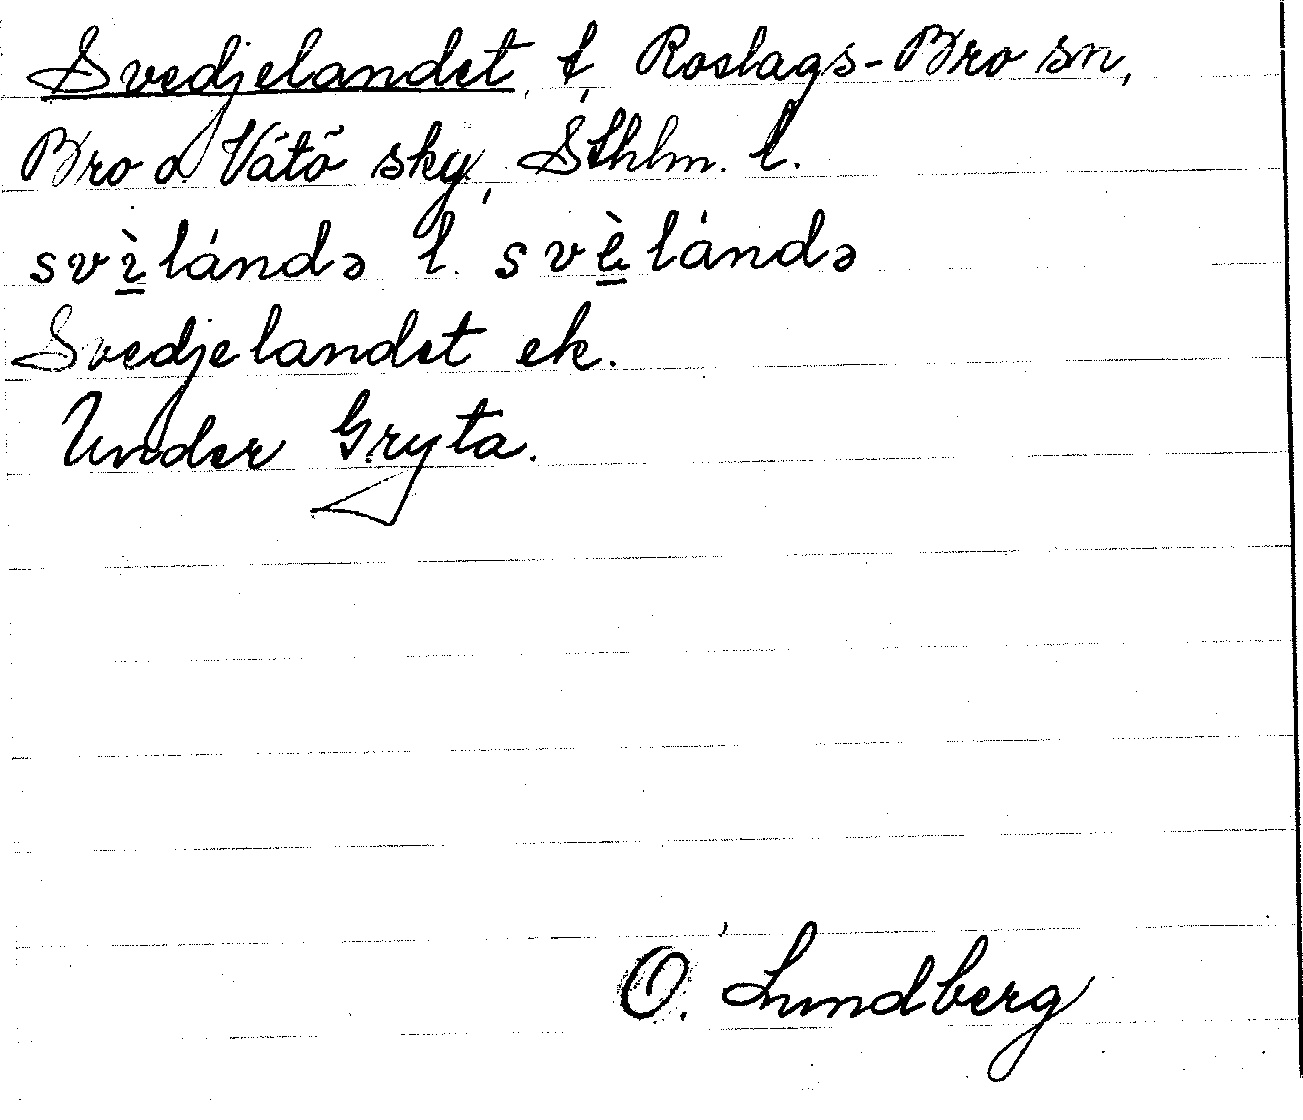 Svedjelandet, t, Roslags-Bro sn,
Bro o. Vätö sky, Sthlm. l.
svì̲lándə l. svè̲lándə
Svedjelandet ek.
Under Gryta.
O. Lundberg